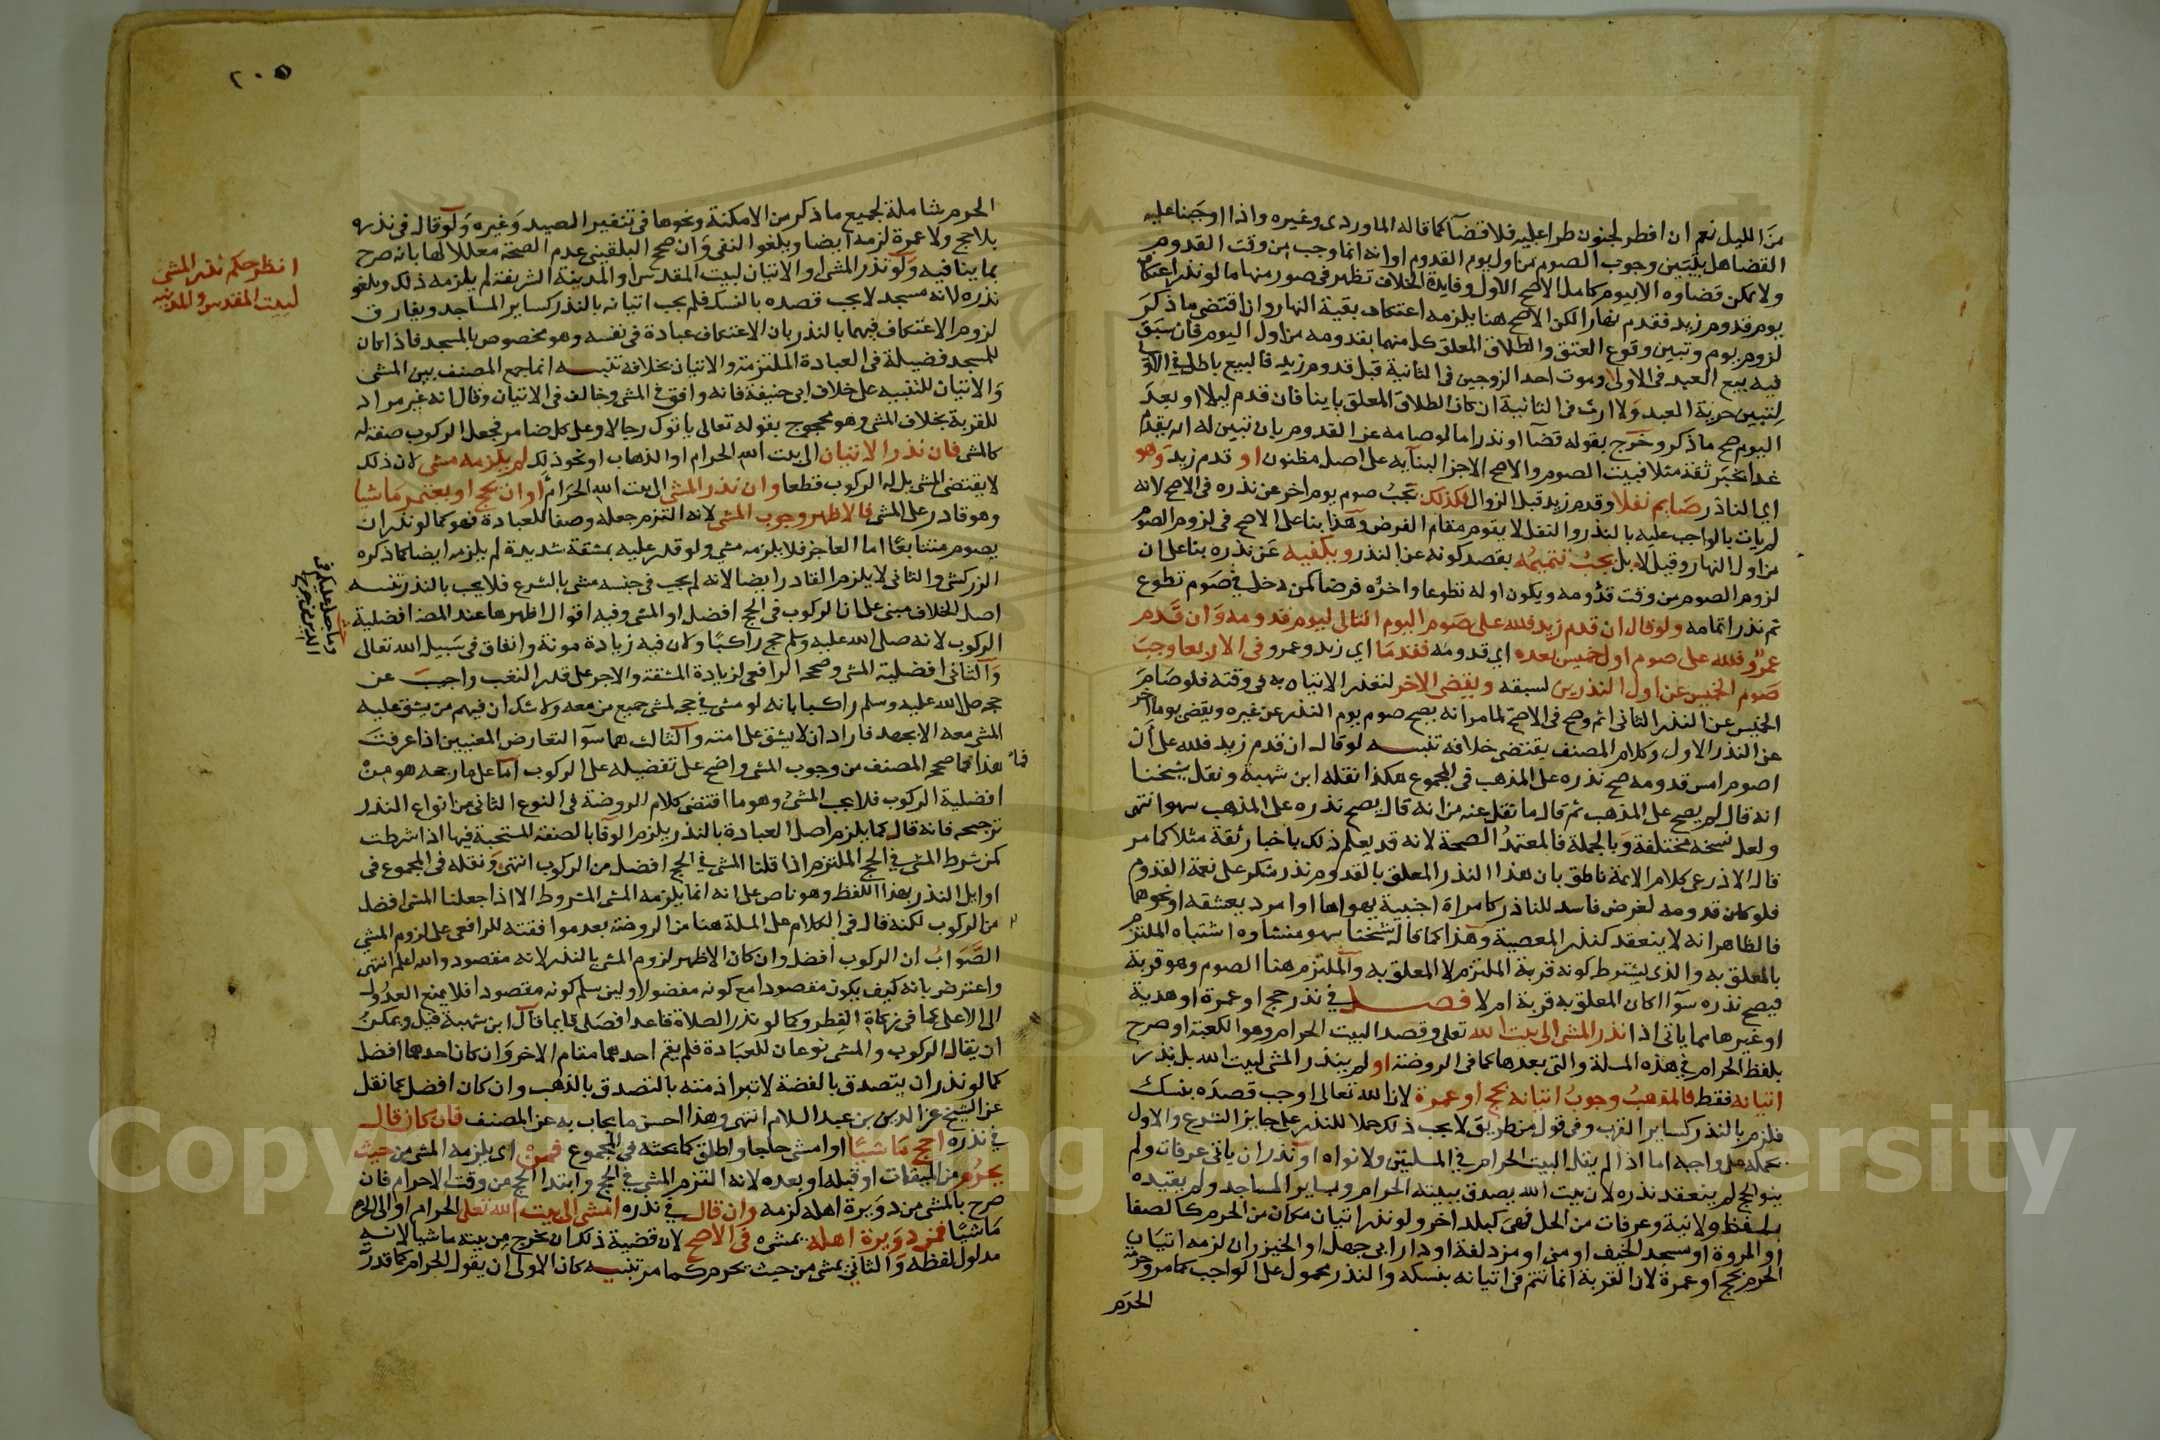 من الليل نعم ان افطر لجنون طرا عليه فلا قضآ كما قاله الماوردى وغيره واذا اوجبنا عليه
القضا هل يتبين وجوب الصوم من اول يوم القدوم او انه انما وجب من وقت القدوم
ولا يمكن قضاوه الا بيوم كامل الاصح الاول وفايدة الخلاف تظهر في صور منها ما لو نذر اعتكاف
يوم قدوم زيد فقدم نهارا لكن الاصح هنا يلزمه اعتكاف بقية النهار وان اقتضى ما ذكر
لزوم يوم وتبين وقوع العتق والطلاق المعلق كل منهما بقدومه من اول اليوم فان سبق
فيه بيع العبد فى الاولى او موت احد الزوجين فى الثانية قبل قدوم زيد فالبيع باطل في الاولى
لتبين حرية العبد ولا ارث فى الثانية ان كان الطلاق المعلق باينا فان قدم ليلا او بعد
اليوم صح ما ذكر وخرج بقوله قضآ او نذرا ما لو صامه عن القدوم بان تبين له انه يقدم
غدا بخبر ثقة مثلا فبيت الصوم والاصح الاجزا لبنآيه على اصل مظنون او قدم زيد وهو
اي الناذر صايم نفلا وقدم زيد قبل الزوال فكذلك يجب صوم يوم اخر عن نذره فى الاصح لانه
لم يات بالواجب عليه بالنذر والنفل لا يقوم مقام الفرض وهذا بنا على الاصح فى لزوم الصوم
من اول النهار وقيل لا بل يجب تتميمه بقصد كونه عن النذر ويكفيه عن نذره بنا على ان
لزوم الصوم من وقت قدومه ويكون اوله تطوعا واخره فرضا كمن دخل في صوم تطوع
ثم نذر اتمامه ولو قال ان قدم زيد فلله على صوم اليوم التالى ليوم قدومه وان قدم
عمرو فلله على صوم اول خميس بعده اي قدومه فقدما اي زيد وعمرو فى الاربعا وجب
صوم الخميس عن اول النذرين لسبقه ويقضى الاخر لتعذر الاتيان به فى وقته فلو صام
الخميس عن النذر الثانى اثم وصح فى الاصح لما مر انه يصح صوم يوم النذر عن غيره ويقضى يوما اخر
عن النذر الاول وكلام المصنف يقتضى خلافه تنبيه لو قال ان قدم زيد فلله على ان
اصوم امس قدومه صح نذره على المذهب فى المجموع هكذا نقله ابن شهبة ونقل شيخنا
انه قال لم يصح على المذهب ثم قال ما نقل عنه من انه قال يصح نذره على المذهب سهو انتهى
ولعل نسخه مختلفة وبالجملة فالمعتمد الصحة لانه قد يعلم ذلك باخبار ثقة مثلا كما مر
قال الاذرعى كلام الائمة ناطق بان هذا النذر المعلق بالقدوم نذر شكر على نعمة القدوم
فلو كان قدومه لغرض فاسد للناذر كامراة اجنبية يهواها او امرد يعشقه او نحوهما
فالظاهر انه لا ينعقد كنذر المعصية وهذا كما قال شيخنا سهو منشاوه اشتباه الملتزم
بالمعلق به والذى يشترط كونه قربة الملتزم لا المعلق به والملتزم هنا الصوم وهو قربة
فيصح نذره سوآ اكان المعلق به قربة ام لا فصـــل في نذر حج او عمرة او هدية
او غيرها مما ياتى اذا نذر المشى الى بيت الله تعلى وقصد البيت الحرام وهو الكعبة او صرح
بلفظ الحرام في هذه المسلة والتى بعدها كما فى الروضة او لم ينذر المشى لبيت الله بل نذر
اتيانه فقط فالمذهب وجوب اتيانه بحج او عمرة لان الله تعالى اوجب قصده بنسك
فلزم بالنذر كساير القرب وفى قول من طريق لا يجب ذلك حملا للنذر على جايز الشرع والاول
يحمله على واجبه اما اذا لم يقل البيت الحرام في المسلتين ولا نواه او نذر ان ياتى عرفات ولم
ينو الحج لم ينعقد نذره لان بيت الله يصدق ببيته الحرام وبساير المساجد ولم يقيده
بلفظ ولا نية وعرفات من الحل فهى كبلد اخر ولو نذر اتيان مكان من الحرم كالصفا
او المروة او مسجد الخيف او منى او مزدلفة او دار ابى جهل او الخيزران لزمه اتيان
الحرم بحج او عمرة لان القربة انما تتم فى اتيانه بنسكه والنذر محمول على الواجب كما مر وحرمة
الحرم
٢٠٥
الحرم شاملة لجميع ما ذكر من الامكنة ونحوها فى تنفير الصيد وغيره ولو قال فى نذره
بلا حج ولا عمرة لزمه ايضا ويلغو النفى وان صحح البلقينى عدم الصحة معللا لها بانه صرح
بما ينافيه ولو نذر المشى او الاتيان لبيت المقدس او المدينة الشريفة لم يلزمه ذلك ويلغو
نذره لانه مسجد لا يجب قصده بالنسك فلم يجب اتيانه بالنذر كساير المساجد ويفارق
لزوم الاعتكاف فيهما بالنذر بان الاعتكاف عبادة فى نفسه وهو مخصوص بالمسجد فاذا كان
للمسجد فضيلة فى العبادة الملتزمة والاتيان بخلافه تنبيه انما جمع المصنف بين المشى
والاتيان للتنبيه على خلاف ابى حنيفة فانه وافق فى المشى وخالف فى الاتيان وقال انه غير مراد
للقربة بخلاف المشى وهو محجوج بقوله تعالى ياتوك رجالا وعلى كل ضامر فجعل الركوب صفة له
كالمشى فان نذر الاتيان الى بيت الله الحرام او الذهاب او نحو ذلك لم يلزمه مشى لان ذلك
لا يقتضى المشى بل له الركوب قطعا وان نذر المشى الى بيت الله الحرام او ان يحج او يعتمر ماشيا
وهو قادر على المشى فالاظهر وجوب المشى لانه التزم جعله وصفا للعبادة فهو كما لو نذر ان
يصوم متتابعا اما العاجز فلا يلزمه مشى ولو قدر عليه بمشقة شديدة لم يلزمه ايضا كما ذكره
الزركشى والثانى لا يلزم القادر ايضا لانه لم يجب فى جنسه مشى بالشرع فلا يجب بالنذر تنبيه
اصل الخلاف مبنى على ان الركوب فى الحج افضل او المشى وفيه اقوال اظهرها عند المصنف افضلية
الركوب لانه صلى الله عليه وسلم حج راكبا ولان فيه زيادة مونة وانفاق فى سبيل الله تعالى
والثانى افضلية المشى وصححه الرافعى لزيادة المشقة والاجر على قدر التعب واجيب عن
حجه صلى الله عليه وسلم راكبا بانه لو مشى في حجه لمشى جميع من معه ولا شك ان فيهم من يشق عليه
المشى معه الا بجهد فاراد ان لا يشق على امته والثالث هما سوآ لتعارض المعنيين اذا عرفت
هذا فما صححه المصنف من وجوب المشى واضح على تفضيله على الركوب اما على ما رجحه هو من
افضلية الركوب فلا يجب المشى وهو ما اقتضى كلام الروضة فى النوع الثانى من انواع النذر
ترجيحه فانه قال كما يلزم اصل العبادة بالنذر يلزم الوفا بالصفة المستحبة فيها اذا شرطت
كمن شرط المشى في الحج الملتزم اذا قلنا المشى في الحج افضل من الركوب انتهى ونقله فى المجموع فى
اوايل النذر بهذا اللفظ وهو ناص على انه انما يلزمه المشى المشروط الا اذا جعلنا المشى افضل
من الركوب لكنه قال فى الكلام على المسلة هنا من الروضة بعد موافقته للرافعى على لزوم المشي
الصواب ان الركوب افضل وان كان الاظهر لزوم المشى بالنذر لانه مقصود والله اعلم انتهى
واعترض بانه كيف يكون مقصودا مع كونه مفضولا ولين سلم كونه مقصودا فلا يمنع العدول
الى الاعلى كما فى زكاة الفطر وكما لو نذر الصلاة قاعدا فصلى قايما قال ابن شهبة قيل ويمكن
ان يقال الركوب والمشى نوعان للعبادة فلم يقم احدهما مقام الاخر وان كان احدهما افضل
كما لو نذر ان يتصدق بالفضة لا تبرا ذمته بالتصدق بالذهب وان كان افضل كما نقل
عن الشيخ عز الدين بن عبد السلام انتهى وهذا احسن ما يجاب به عن المصنف فان كان قال
في نذره احج ماشيا او امشى حاجا واطلق كما بحثه فى المجموع فمن اى يلزمه المشى من حيث
يحرم من الميقات او قبله او بعده لانه التزم المشى في الحج وابتدا الحج من وقت الاحرام فان
صرح بالمشى من دويرة اهله لزمه وان قال في نذره امشى الى بيت الله تعلى الحرام او الى الحرم
ماشيا فمن دويرة اهله يمشى فى الاصح لان قضية ذلك ان يخرج من بيته ماشيا لانه
مدلول لفظه والثانى يمشى من حيث يحرم كما مر تنبيه كان الاولى ان يقول الحرام كما قدرته
انظر حكم نذر المشى
لبيت المقدس والمدينه